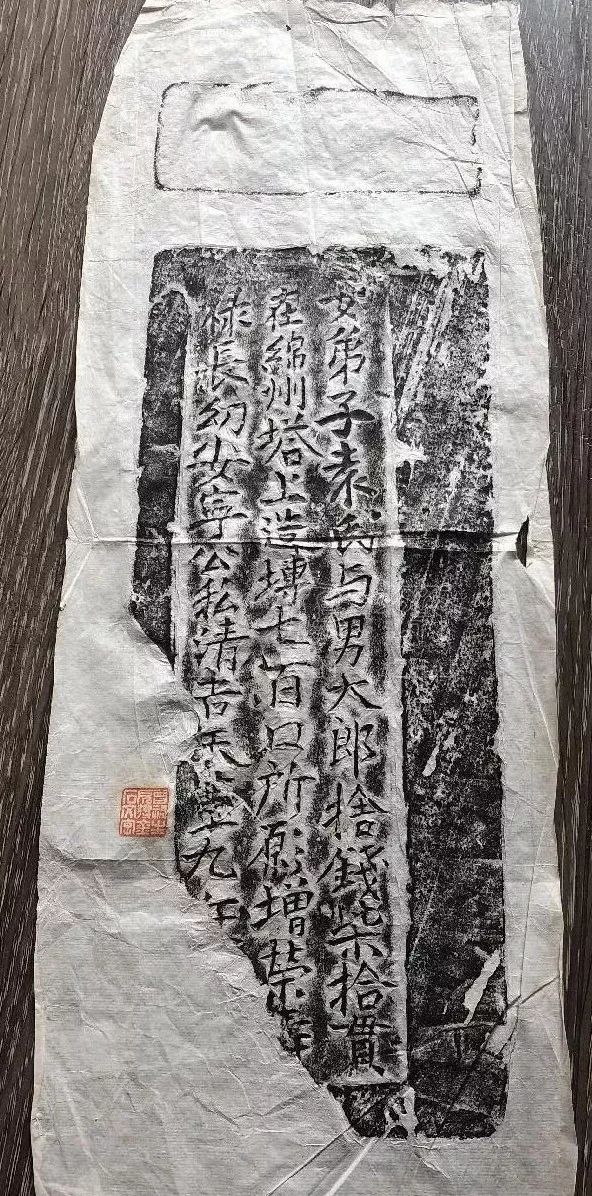 女弟子袁氏与男大郎捨錢柒拾貫
在綿州塔上造塼七百口所愿增榮
祿長幼安寧公私清吉天
九年